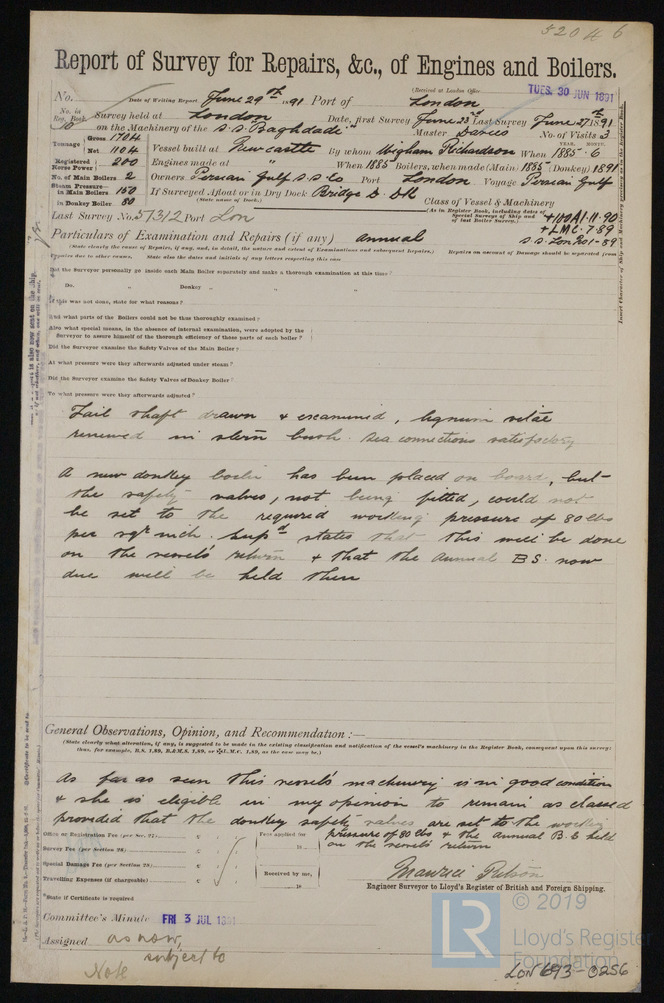 52046
Report of Survey for Repairs, &c., of Engines and Boilers.
(Received at London Office TUES. 30 JUN 1891
No. Date of Writing Report June 29th 1891 Port of London
No. in Reg. Book. 10 Survey held at London Date, first Survey June 23rd Last Survey June 27th 1891
on the Machinery of the S.S. "Baghdad" Master Davies No. of Visits 3
Tonnage Gross 1704 Net 1104 Vessel built at Newcastle By whom Wigham Richardson When 1885-6
YEAR. MONTH.
Registered Horse Power 200 Engines made at " When 1885 Boilers, when made (Main) 1885 (Donkey) 1891
No. of Main Boilers 2 Owners Persian Gulf S.S. Co Port London Voyage Persian Gulf
Steam Pressure— in Main Boilers 150 If Surveyed Afloat or in Dry Dock Bridge D. Dk
(State name of Dock.)
in Donkey Boiler 80
Class of Vessel & Machinery
(As in Register Book, including dates of Special Surveys of Ship and of last Boiler Survey.)
+100A1-11-90
+LMC 7-89
S.S. Lon No1-89
Last Survey No. 51312 Port Lon
Particulars of Examination and Repairs (if any) Annual
(State clearly the cause of Repairs, if any, and, in detail, the nature and extent of Examinations and subsequent Repairs.) Repairs on account of Damage should be separated from
Repairs due to other causes. State also the dates and initials of any letters respecting this case
Did the Surveyor personally go inside each Main Boiler separately and make a thorough examination at this time?
Do. " Donkey " " "
If this was not done, state for what reasons?
And what parts of the Boilers could not be thus thoroughly examined?
Also what special means, in the absence of internal examination, were adopted by the
Surveyor to assure himself of the thorough efficiency of those parts of each boiler?
Did the Surveyor examine the Safety Valves of the Main Boiler?
At what pressure were they afterwards adjusted under steam?
Did the Surveyor examine the Safety Valves of Donkey Boiler?
To what pressure were they afterwards adjusted?
Tail shaft drawn & examined, lignum vitae
renewed in stern bush. Sea connections satisfactory
A new donkey boiler has been placed on board, but
the safety valves, not being fitted, could not
be set to the required working pressure of 80 lbs
per sqr inch. Supd states that this will be done
on the vessel's return & that the Annual B.S. now
due will be held then
General Observations, Opinion, and Recommendation:—
(State clearly what alteration, if any, is suggested to be made in the existing classification and notification of the vessel's machinery in the Register Book, consequent upon this survey:
thus, for example, B.S. 1,89, B.&M.S. 1,89, or L.M.C. 1,89, as the case may be.)
As far as seen this vessel's machinery is in good condition
& she is eligible in my opinion to remain as classed
provided that the donkey safety valves are set to the working
pressure of 80 lbs & the annual B.S held
on the vessel's return
Office or Registration Fee (per Sec. 27) £
Survey Fee (per Section 28) £
Special Damage Fee (per Section 28) £
Travelling Expenses (if chargeable) £
Fees applied for
18
Received by me,
18
*State if Certificate is required
Engineer Surveyor to Lloyd's Register of British and Foreign Shipping.
Committee's Minute FRI 3 JUL 1891
Assigned as now,
subject to
Note
© 2019
LR
Lloyd's Register
Foundation
LON 693-0256